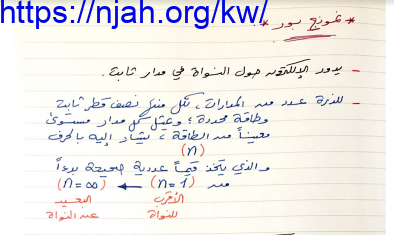 https://njah.org/kw/
* نموذج بور :
- يدور الإلكترون حول النواة في مدار ثابتة .
- للذرة عدد من المدارات ، لكل منها نصف قطر ثابتة
وطاقة محددة ؛ ويمثل كل مدار مستوىً
معيناً من الطاقة ، يشار إليه بالحرف
(n)
والذي يتخذ قيماً عددية صحيحة بدءاً
من (n=1) ← (n=∞)
الأقرب البعيد
للنواة عن النواة